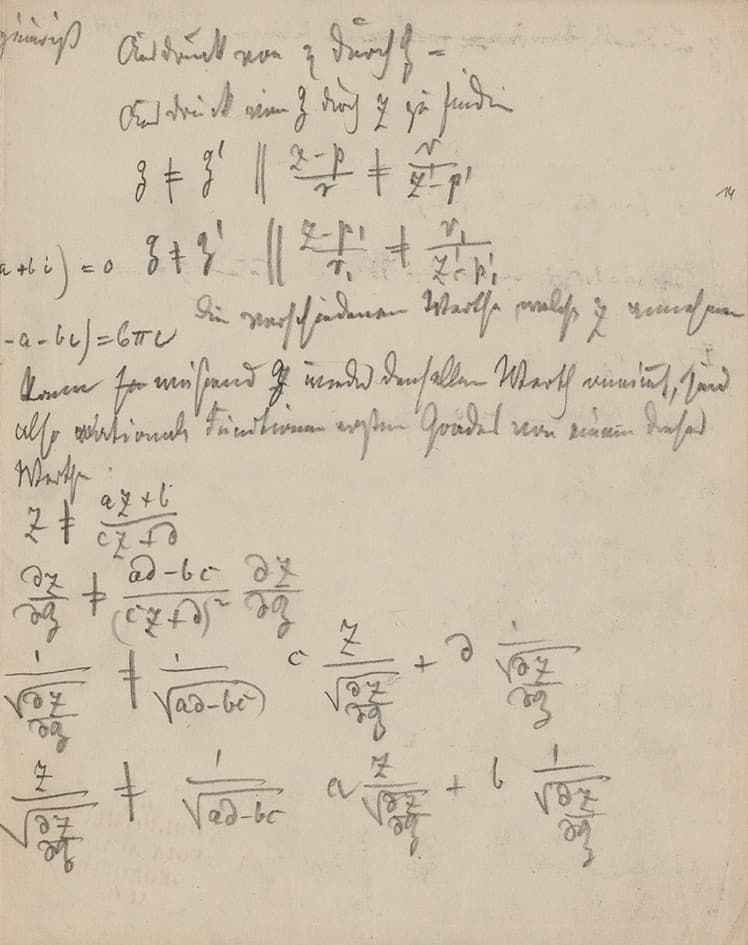 Ausdruck von z durch ʒ =
Ausdruck von ʒ durch z zu finden
ʒ ≠ ʒ' || \frac{z-p}{r} ≠ \frac{r}{z'-p'}
14
a+bi) = 0 ʒ ≠ ʒ' || \frac{z-p_1}{r_1} ≠ \frac{r_1}{z'-p'_1}
-a-bi) = 6πi Die verschiedenen Werthe welche z annehmen
kann während ʒ wieder denselben Werth annimmt, sind
also rationale Functionen ersten Grades von einem dieser
Werthe.
z ≠ \frac{az+b}{cz+d}
\frac{∂z}{∂ʒ} ≠ \frac{ad-bc}{(cz+d)^2} \frac{∂z}{∂ʒ}
\frac{1}{\sqrt{\frac{∂z}{∂ʒ}}} ≠ \frac{1}{\sqrt{ad-bc}} c \frac{z}{\sqrt{\frac{∂z}{∂ʒ}}} + d \frac{1}{\sqrt{\frac{∂z}{∂ʒ}}}
\frac{z}{\sqrt{\frac{∂z}{∂ʒ}}} ≠ \frac{1}{\sqrt{ad-bc}} a \frac{z}{\sqrt{\frac{∂z}{∂ʒ}}} + b \frac{1}{\sqrt{\frac{∂z}{∂ʒ}}}